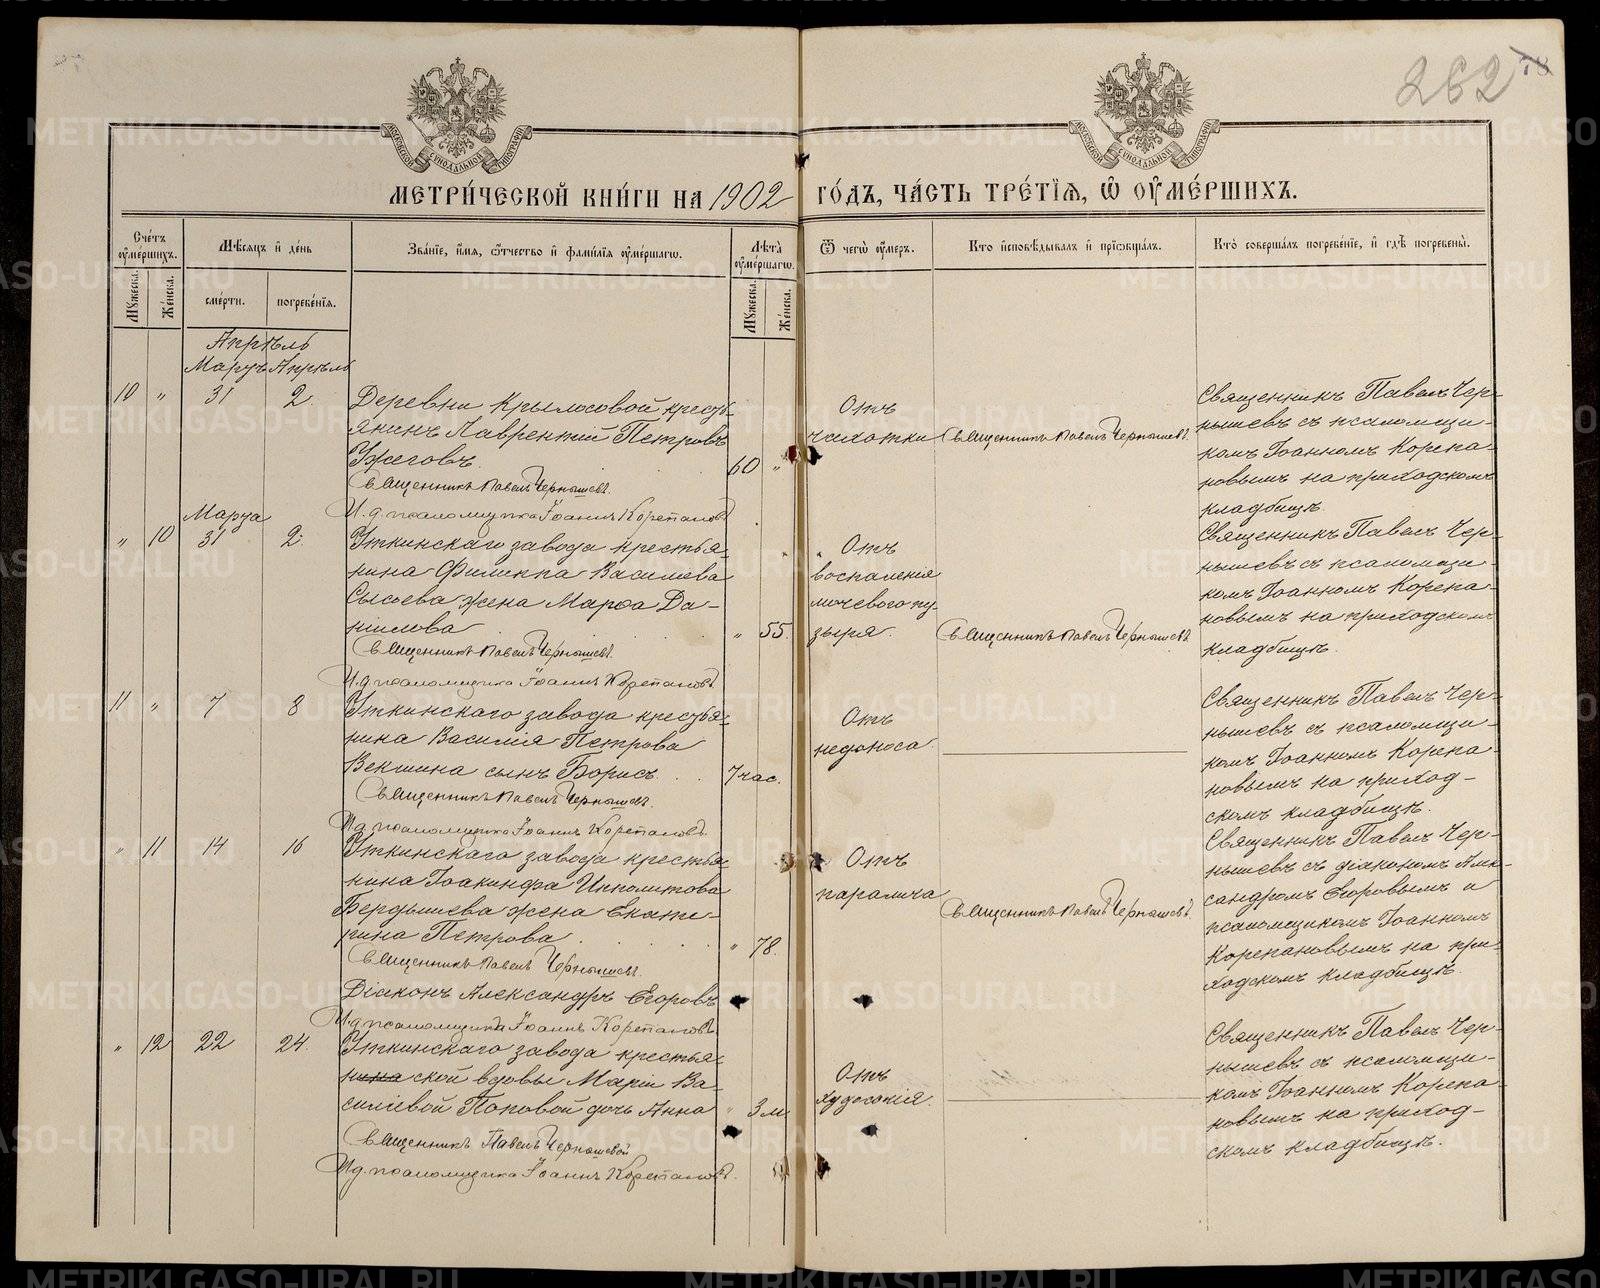 262
78
МОСКОВСКОЙ СѴНОДАЛЬНОЙ ТИПОГРАФІИ
МОСКОВСКОЙ СѴНОДАЛЬНОЙ ТИПОГРАФІИ
МЕТРИ́ЧЕСКОЙ КНИ́ГИ НА 1902 ГО́ДЪ, ЧА́СТЬ ТРЕ́ТЇѦ, Ѡ҆ ОУ҆МЕ́РШИХЪ.
Сче́тъ оу҆ме́ршихъ.
Мꙋжеска.
Же́нска.
Мѣ́сѧцъ и҆ де́нь
сме́рти.
погребе́нїѧ.
Зва́нїе, и҆́мѧ, ѻ҆́тчество и҆ фами́лїѧ оу҆ме́ршагѡ.
Лѣта̀ оу҆ме́ршагѡ.
Мꙋжеска.
Же́нска.
Ѿ чегѡ̀ оу҆́меръ.
Кто̀ и҆сповѣ́дывалъ и҆ прїѡбща́лъ.
Кто̀ соверша́лъ погребе́нїе, и҆ гдѣ̀ погребены̀.
Апрѣль
Мартъ Апрѣль
10 " 31 2
Деревни Крылосовой кресть-
янинъ Лаврентій Петровъ
Ужеговъ. 60 "
Священникъ Павелъ Чернышевъ.
И.д. псаломщика Іоаннъ Корепановъ
Отъ
чахотки
Священникъ Павелъ Чернышевъ.
Священникъ Павелъ Чер-
нышевъ съ псаломщи-
комъ Іоанномъ Корепа-
новымъ на приходскомъ
кладбищѣ.
Марта
" 10 31 2.
Уткинскаго завода крестья-
нина Филиппа Василева
Сысоева жена Марѳа Да-
ніилова " 55.
Священникъ Павелъ Чернышевъ.
И.д. псаломщика Іоаннъ Корепановъ.
Отъ
воспаленія
мочевого пу-
зыря.
Священникъ Павелъ Чернышевъ
Священникъ Павелъ Чер-
нышевъ съ псаломщи-
комъ Іоанномъ Корепа-
новымъ на приходскомъ
кладбищѣ.
11 " 7 8
Уткинскаго завода крестья-
нина Василія Петрова
Векшина сынъ Борисъ. 7 час.
Священникъ Павелъ Чернышевъ.
И.д. псаломщика Іоаннъ Корепановъ.
Отъ
недоноса.
Священникъ Павелъ Чер-
нышевъ съ псаломщи-
комъ Іоанномъ Корепа-
новымъ на приход-
скомъ кладбищѣ.
" 11 14 16
Уткинскаго завода крестья-
нина Іоакинфа Ипполитова
Бердышева жена Екате-
рина Петрова " 78.
Священникъ Павелъ Чернышевъ.
Діаконъ Александръ Егоровъ
И.д. псаломщика Іоаннъ Корепановъ.
Отъ
паралича
Священникъ Павелъ Чернышевъ.
Священникъ Павелъ Чер-
нышевъ съ діакономъ Алек-
сандромъ Егоровымъ и
псаломщикомъ Іоанномъ
Корепановымъ на при-
ходскомъ кладбищѣ.
" 12 22 24.
Уткинскаго завода крестья-
нина ской вдовы Маріи Ва-
силіевой Поповой дочь Анна " 3 м.
Священникъ Павелъ Чернышевой
И.д. псаломщика Іоаннъ Корепановъ.
Отъ
худосочія.
Священникъ Павелъ Чер-
нышевъ съ псаломщи-
комъ Іоанномъ Корепа-
новымъ на приход-
скомъ кладбищѣ.
METRIKI.GASO-URAL.RU